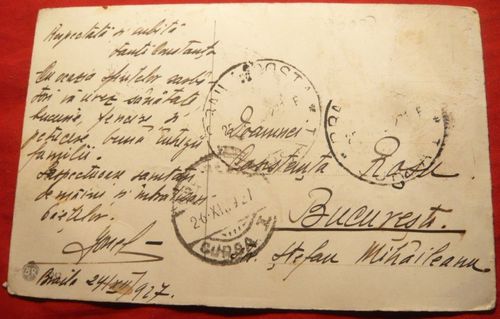 Respectată și iubită
tanti Constanța
Cu ocazia sfintelor sărbă-
tori vă urez sănătate
bucurie, fericire și
petrecere bună întregii
familii.
Respectuoase sărutări
de mâini și
Ionel
Braila 24/XII/927.
Doamnei
Constanța Rosu
București
Ștefan Mihăileanu
BRAILA
POSTA
26.XII.927
CURSA I